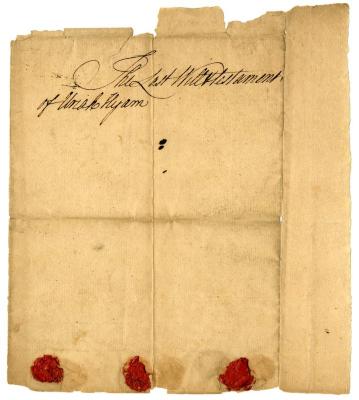 The Last Will & Testament
of Uriah Hyam